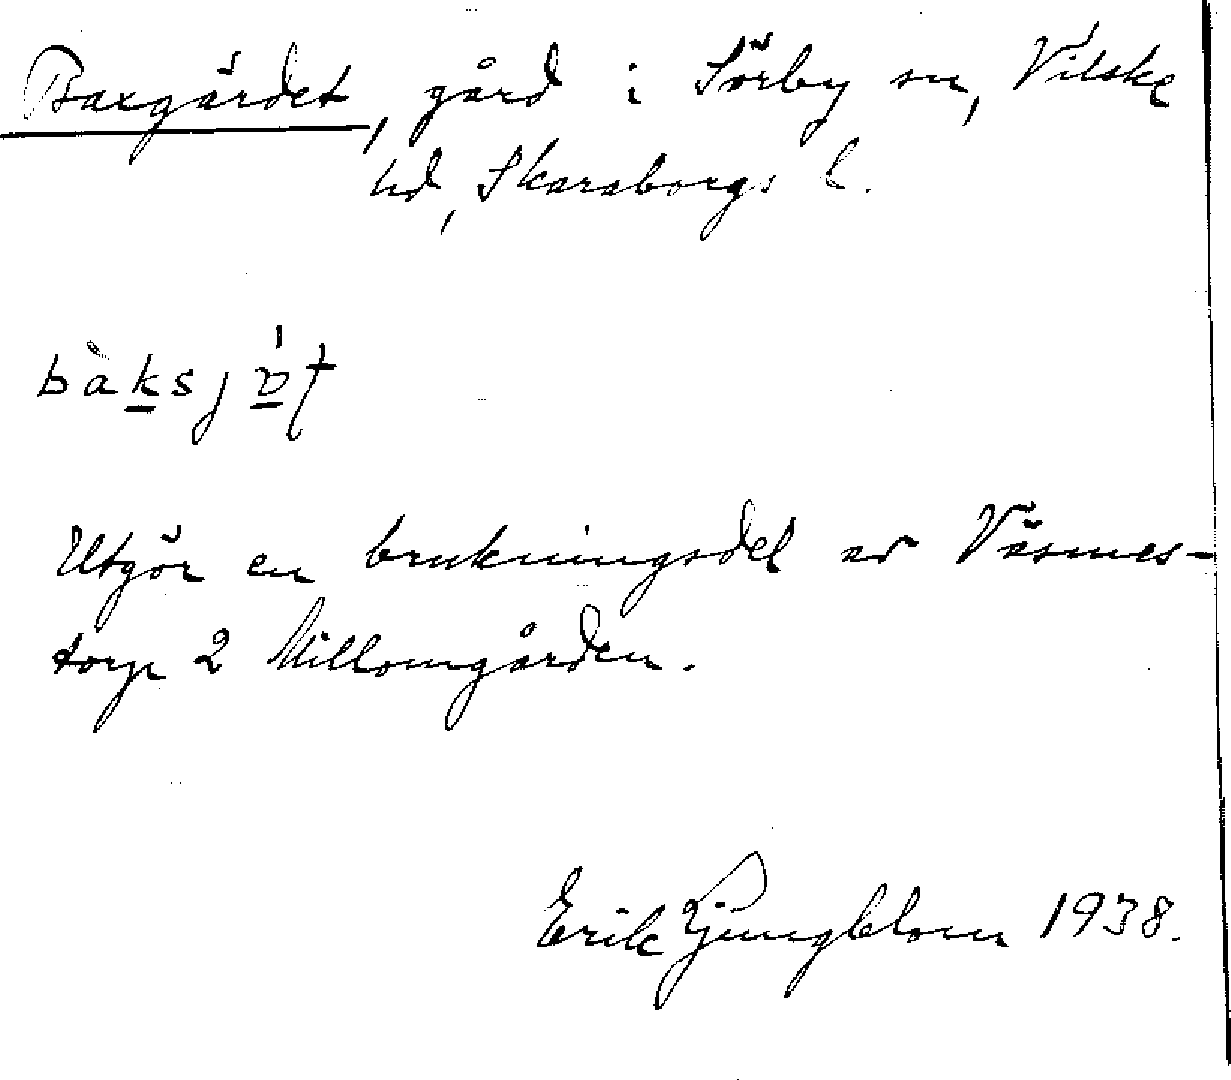 Baxgärdet, gård i Sörby sn, Vilske
hd, Skaraborgs l.
bàksj
Utgör en brukningsdel av Väsmes-
torp 2 Millomgården.
Erik Ljungblom 1938.